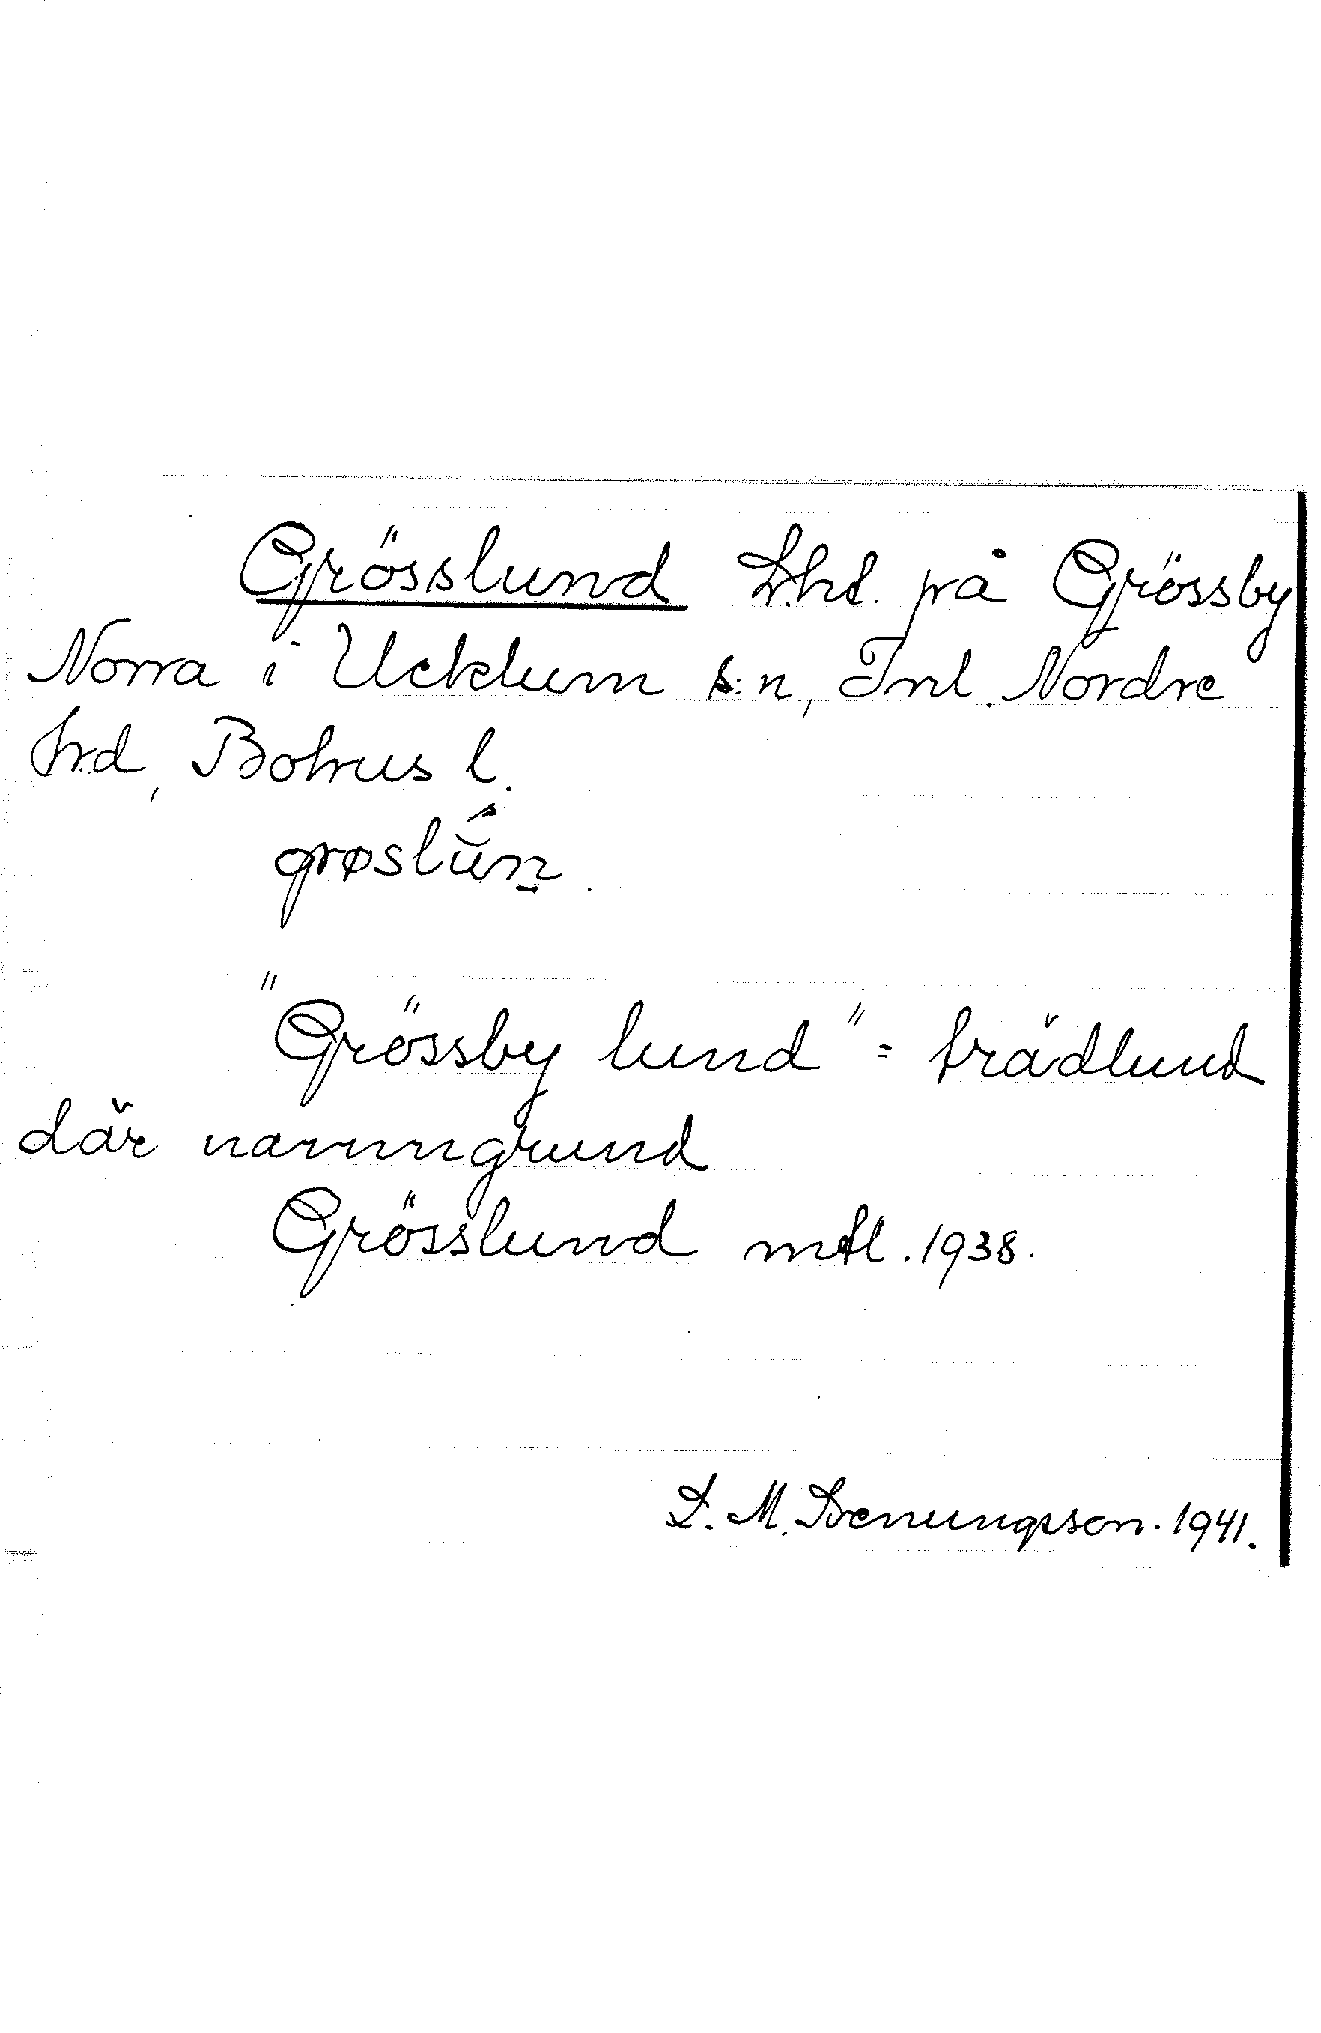 Grösslund Lht. på Grössby
Norra i Ucklum s:n, Inl. Nordre
hrd, Bohus l.
grøslún
"Grössby lund" = trädlund
där namngrund
Grösslund mtl. 1938.
D. M. Benungsson. 1941.